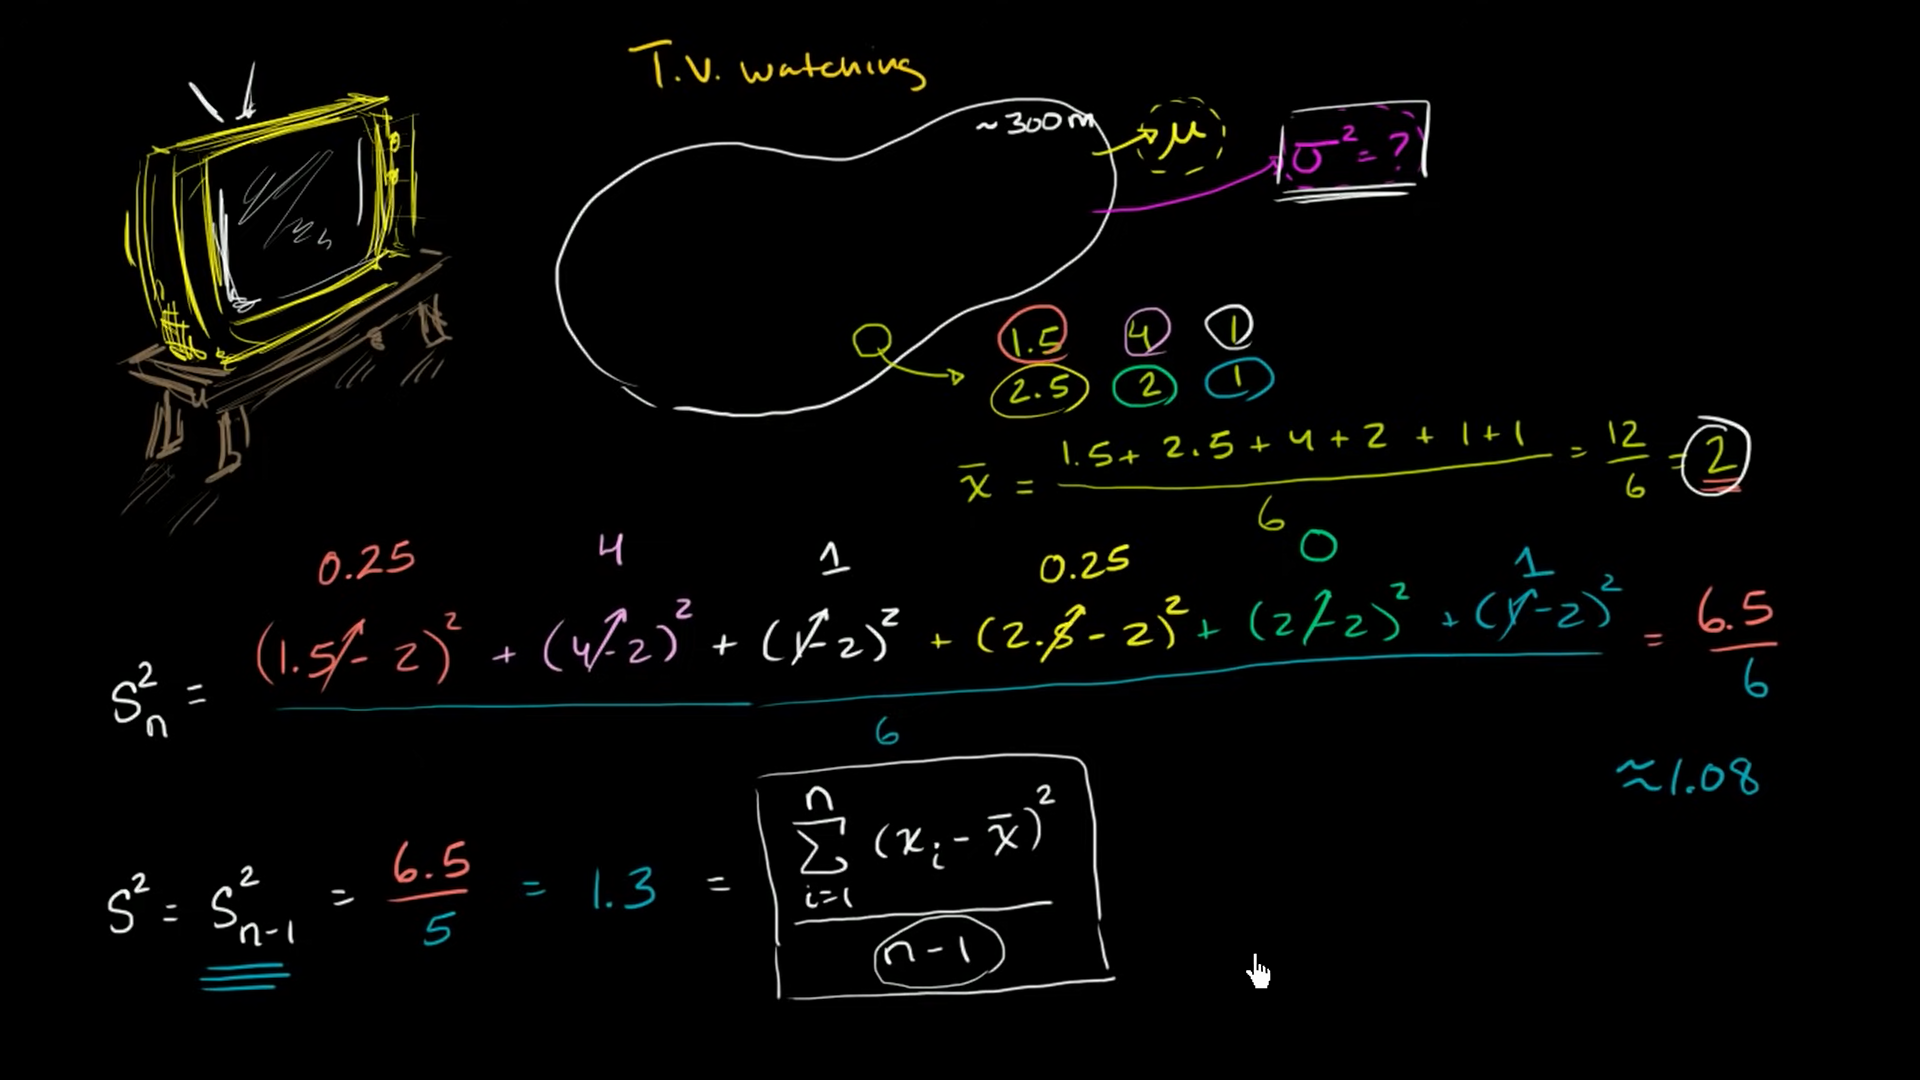 T.V. watching
~300m → μ
σ² = ?
1.5 4 1
2.5 2 1
x̄ = (1.5 + 2.5 + 4 + 2 + 1 + 1) / 6 = 12/6 = 2
0.25 4 1 0.25 0 1
Sₙ² = ((1.5 - 2)² + (4 - 2)² + (1 - 2)² + (2.5 - 2)² + (2 - 2)² + (1 - 2)²) / 6 = 6.5/6
≈ 1.08
S² = Sₙ₋₁² = 6.5/5 = 1.3 = ∑ᵢ₌₁ⁿ (xᵢ - x̄)² / (n - 1)